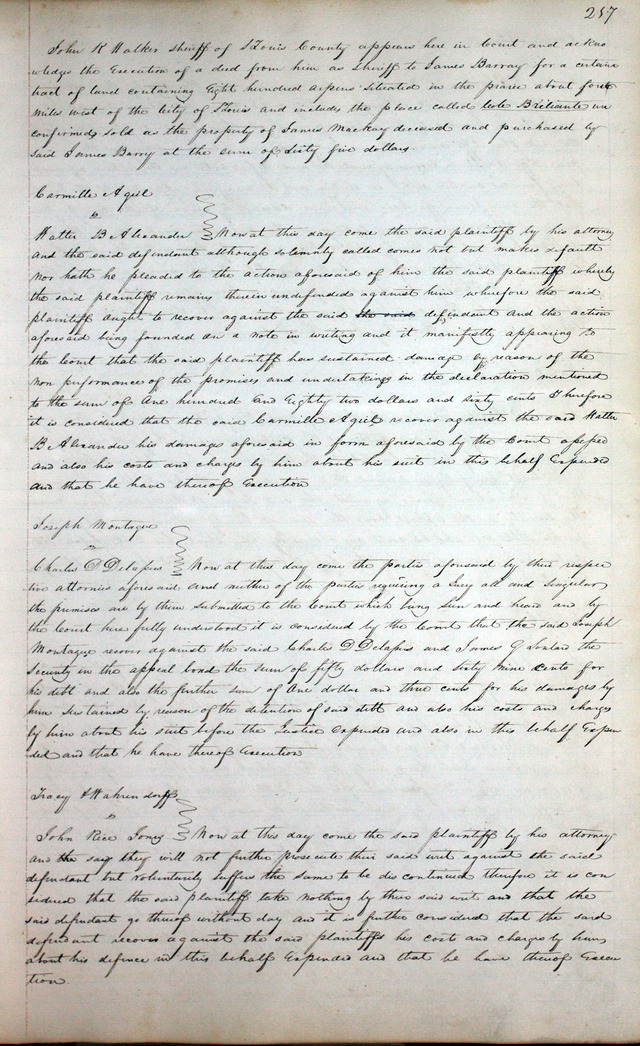 257
John K Walker Sheriff of St Louis County appears here in Court and ackno
wledges the Execution of a deed from him as Sheriff to James Barry for a certain
tract of land containing Eight hundred arpens situated in the prairie about four
miles west of the City of St Louis and includes the place called Cote Briliante un
confirmed sold as the property of James Mackay deceased and purchased by
said James Barry at the sum of Sixty five dollars.
Carmille Agiel
vs
Walter B Alexander Now at this day come the said plaintiff by his attorney
and the said defendant although solemnly called comes not but makes default
nor hath he pleaded to the action aforesaid of him the said plaintiff whereby
the said plaintiff remains therein undefended against him wherefore the said
plaintiff aught to recover against the said the said defendant and the action
aforesaid being founded on a note in writing and it manifestly appearing to
the Court that the said plaintiff has sustained damage by reason of the
non performance of the promises and undertakings in the declaration mentioned
to the sum of One hundred and Eighty two dollars and sixty cents Therefore
it is considered that the said Carmille Agiel recover against the said Walter
B Alexander his damages aforesaid in form aforesaid by the Court assessed
and also his costs and charges by him about his suit in this behalf Expended
and that he have thereof Execution
Joseph Montague
vs
Charles D Delapius Now at this day come the parties aforesaid by their respec
tive attornies aforesaid and neither of the parties requiring a Jury all and Singular
the premises are by them submitted to the Court which being seen and heard and by
the Court here fully understood it is considered by the Court that the said Joseph
Montague recover against the said Charles D Delapius and James G the
Security in the appeal bond the sum of fifty dollars and sixty nine cents for
his debt and also the further sum of One dollar and three cents for his damages by
him sustained by reason of the detention of said debt and also his costs and charges
by him about his suit before the Justice Expended and also in this behalf Expen
ded and that he have thereof Execution
Tracy & Wahrendorff
vs
John Rice Jones Now at this day come the said plaintiff by his attorney
and the say they will not further prosecute their said writ against the said
defendant but voluntarily suffers the same to be discontinued therefore it is con
sidered that the said plaintiff take nothing by their said writ and that the
said defendant go thereof without day and it is further considered that the said
defendant recover against the said plaintiffs his costs and charges by him
about his defence in this behalf Expended and that he have thereof Execu
tion.